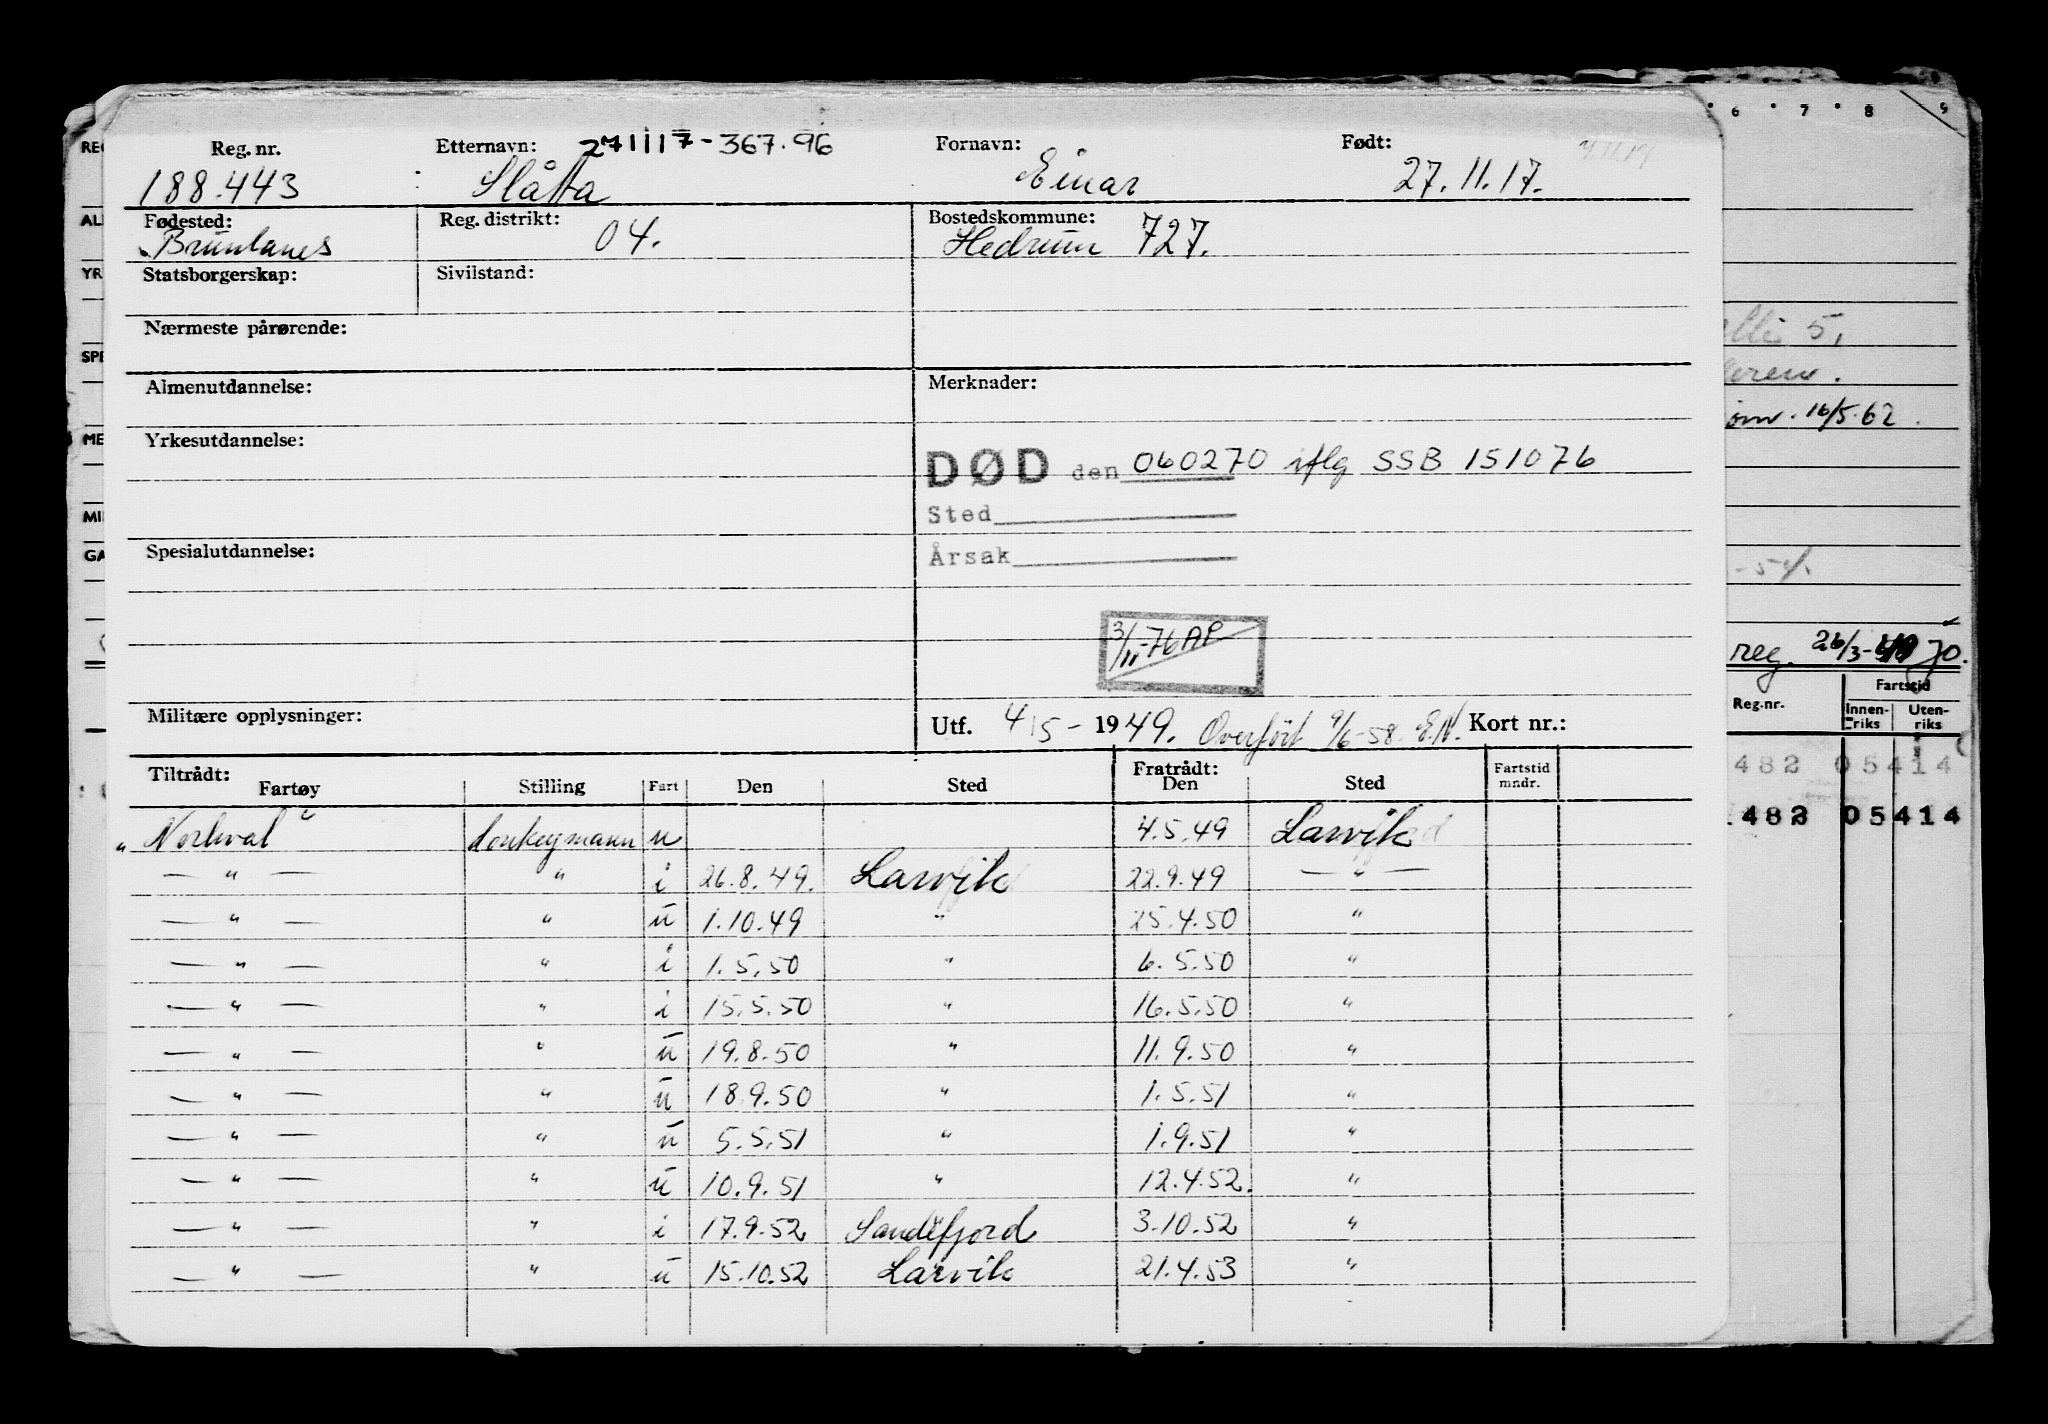 Reg. nr. Etternavn: 271117-367.96 Fornavn: Født:
188.443 Slåtta Einar 27.11.17.
Fødested: Reg. distrikt: 04. Bostedskommune:
Brunlanes Hedrum 727.
Statsborgerskap: Sivilstand:
Nærmeste pårørende:
Almenutdannelse: Merknader:
Yrkesutdannelse:
DØD den 060270 iflg SSB 151076
Sted
Årsak
Spesialutdannelse:
3/11-76 AP
Militære opplysninger: Utf. 4/5-1949. Overført 9/6-58. E.N. Kort nr.:
Tiltrådt: Fratrådt: Fartstid
Fartøy Stilling Fart Den Sted Den Sted mndr.
"Norhval" donkeymann u 4.5.49 Larvik
— " — " i 26.8.49. Larvik 22.9.49 — " —
— " — " u 1.10.49 " 25.4.50 "
— " — " i 1.5.50 " 6.5.50 "
— " — " i 15.5.50 " 16.5.50 "
— " — " u 19.8.50 " 11.9.50 "
— " — " u 18.9.50 " 1.5.51 "
— " — " u 5.5.51 " 1.9.51 "
— " — " u 10.9.51 " 12.4.52. "
— " — " i 17.9.52 Sandefjord 3.10.52 "
— " — " u 15.10.52 Larvik 21.4.53 "
REG
AL
YR
SPE
ME
MI
GA
6 7 8 9
5.
16/5.62.
reg. 26/3- 70.
Reg.nr. Fartstid
Innenriks Utenriks
482 05414
482 05414